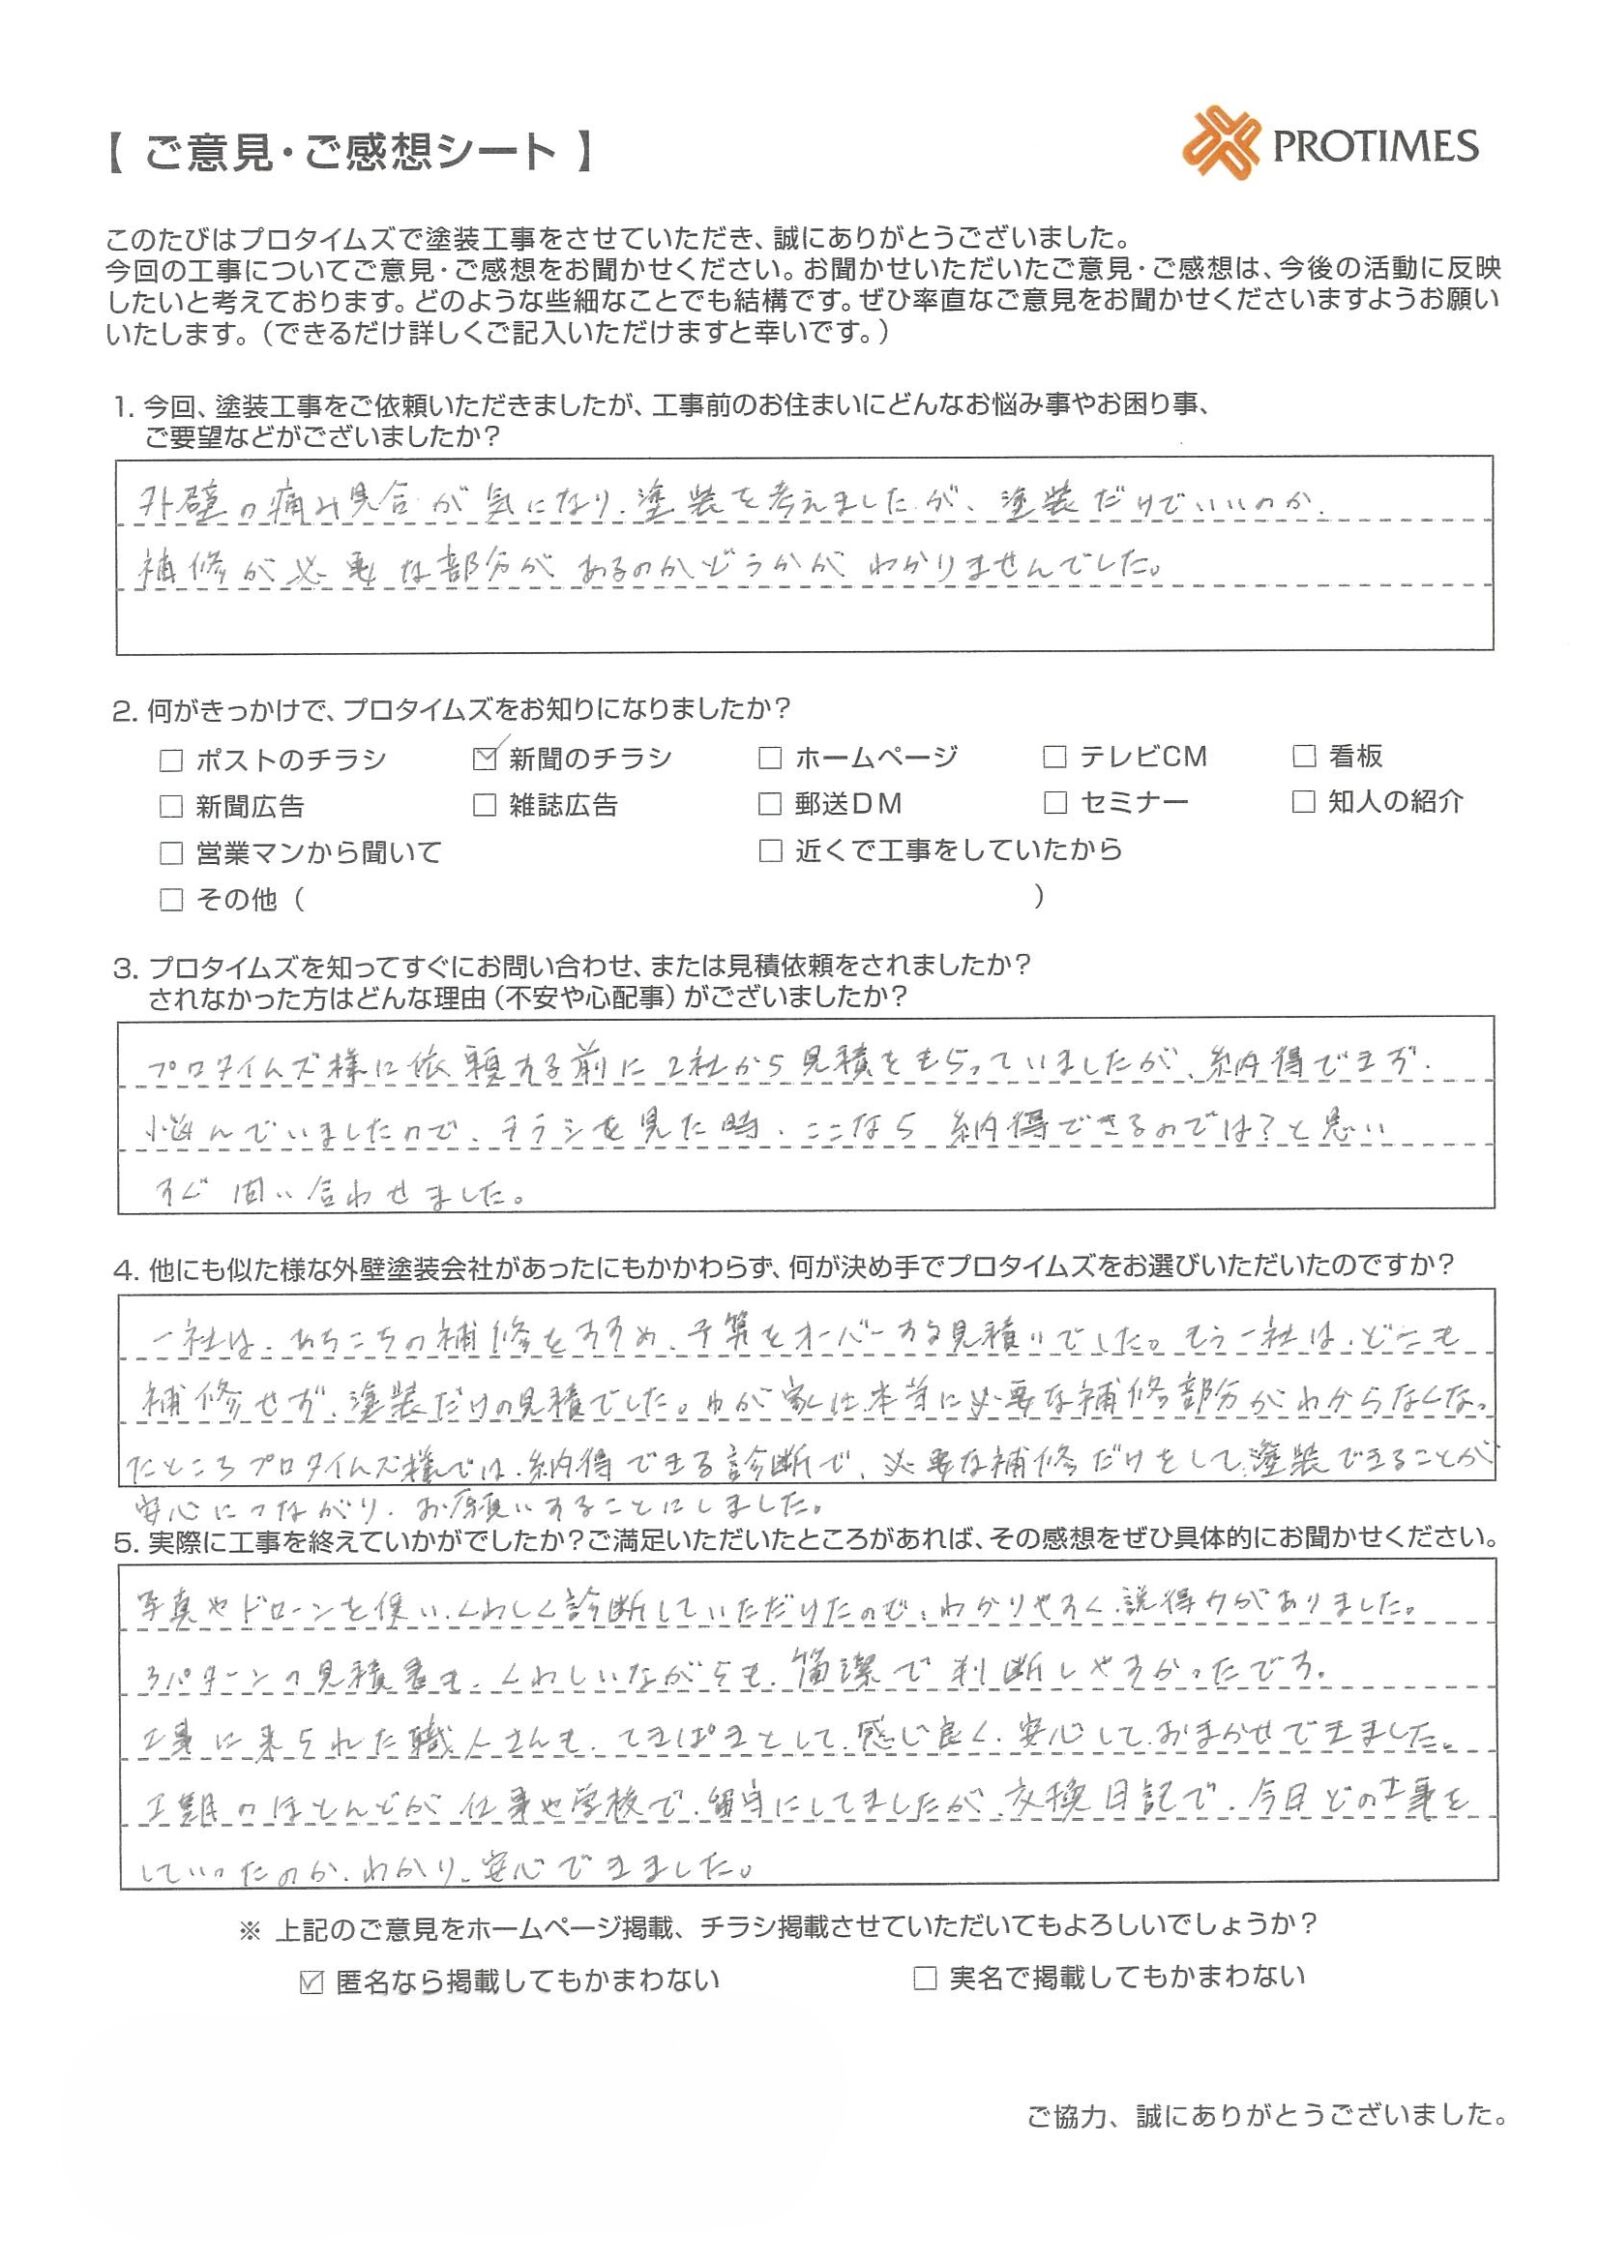 【 ご意見・ご感想シート 】
PROTIMES
このたびはプロタイムズで塗装工事をさせていただき、誠にありがとうございました。
今回の工事についてご意見・ご感想をお聞かせください。お聞かせいただいたご意見・ご感想は、今後の活動に反映
したいと考えております。どのような些細なことでも結構です。ぜひ率直なご意見をお聞かせくださいますようお願い
いたします。（できるだけ詳しくご記入いただけますと幸いです。）
1. 今回、塗装工事をご依頼いただきましたが、工事前のお住まいにどんなお悩み事やお困り事、
ご要望などがございましたか？
外壁の痛み具合が気になり、塗装を考えましたが、塗装だけでいいのか、
補修が必要な部分があるのかどうかがわかりませんでした。
2. 何がきっかけで、プロタイムズをお知りになりましたか？
□ ポストのチラシ ☑ 新聞のチラシ □ ホームページ □ テレビCM □ 看板
□ 新聞広告 □ 雑誌広告 □ 郵送DM □ セミナー □ 知人の紹介
□ 営業マンから聞いて □ 近くで工事をしていたから
□ その他（ ）
3. プロタイムズを知ってすぐにお問い合わせ、または見積依頼をされましたか？
されなかった方はどんな理由（不安や心配事）がございましたか？
プロタイムズ様に依頼する前に2社から見積をもらっていましたが、納得できず、
悩んでいましたので、チラシを見た時、ここなら納得できるのでは？と思い
すぐ問い合わせました。
4. 他にも似た様な外壁塗装会社があったにもかかわらず、何が決め手でプロタイムズをお選びいただいたのですか？
一社は、あちこちの補修をすすめ、予算をオーバーする見積りでした。もう一社は、どこも
補修せず、塗装だけの見積でした。わが家は本当に必要な補修部分がわからなくなっ
たところプロタイムズ様では、納得できる診断で、必要な補修だけをして、塗装できることが
安心につながり、お願いすることにしました。
5. 実際に工事を終えていかがでしたか？ご満足いただいたところがあれば、その感想をぜひ具体的にお聞かせください。
写真やドローンを使い、くわしく診断していただけたので、わかりやすく、説得力がありました。
3パターンの見積書も、くわしいながらも、簡潔で判断しやすかったです。
工事に来られた職人さんも、てきぱきとして、感じ良く、安心して、おまかせできました。
工期のほとんどが仕事や学校で、留守にしてましたが、交換日記で、今日どの工事を
していったのか、わかり、安心できました。
※ 上記のご意見をホームページ掲載、チラシ掲載させていただいてもよろしいでしょうか？
☑ 匿名なら掲載してもかまわない □ 実名で掲載してもかまわない
ご協力、誠にありがとうございました。